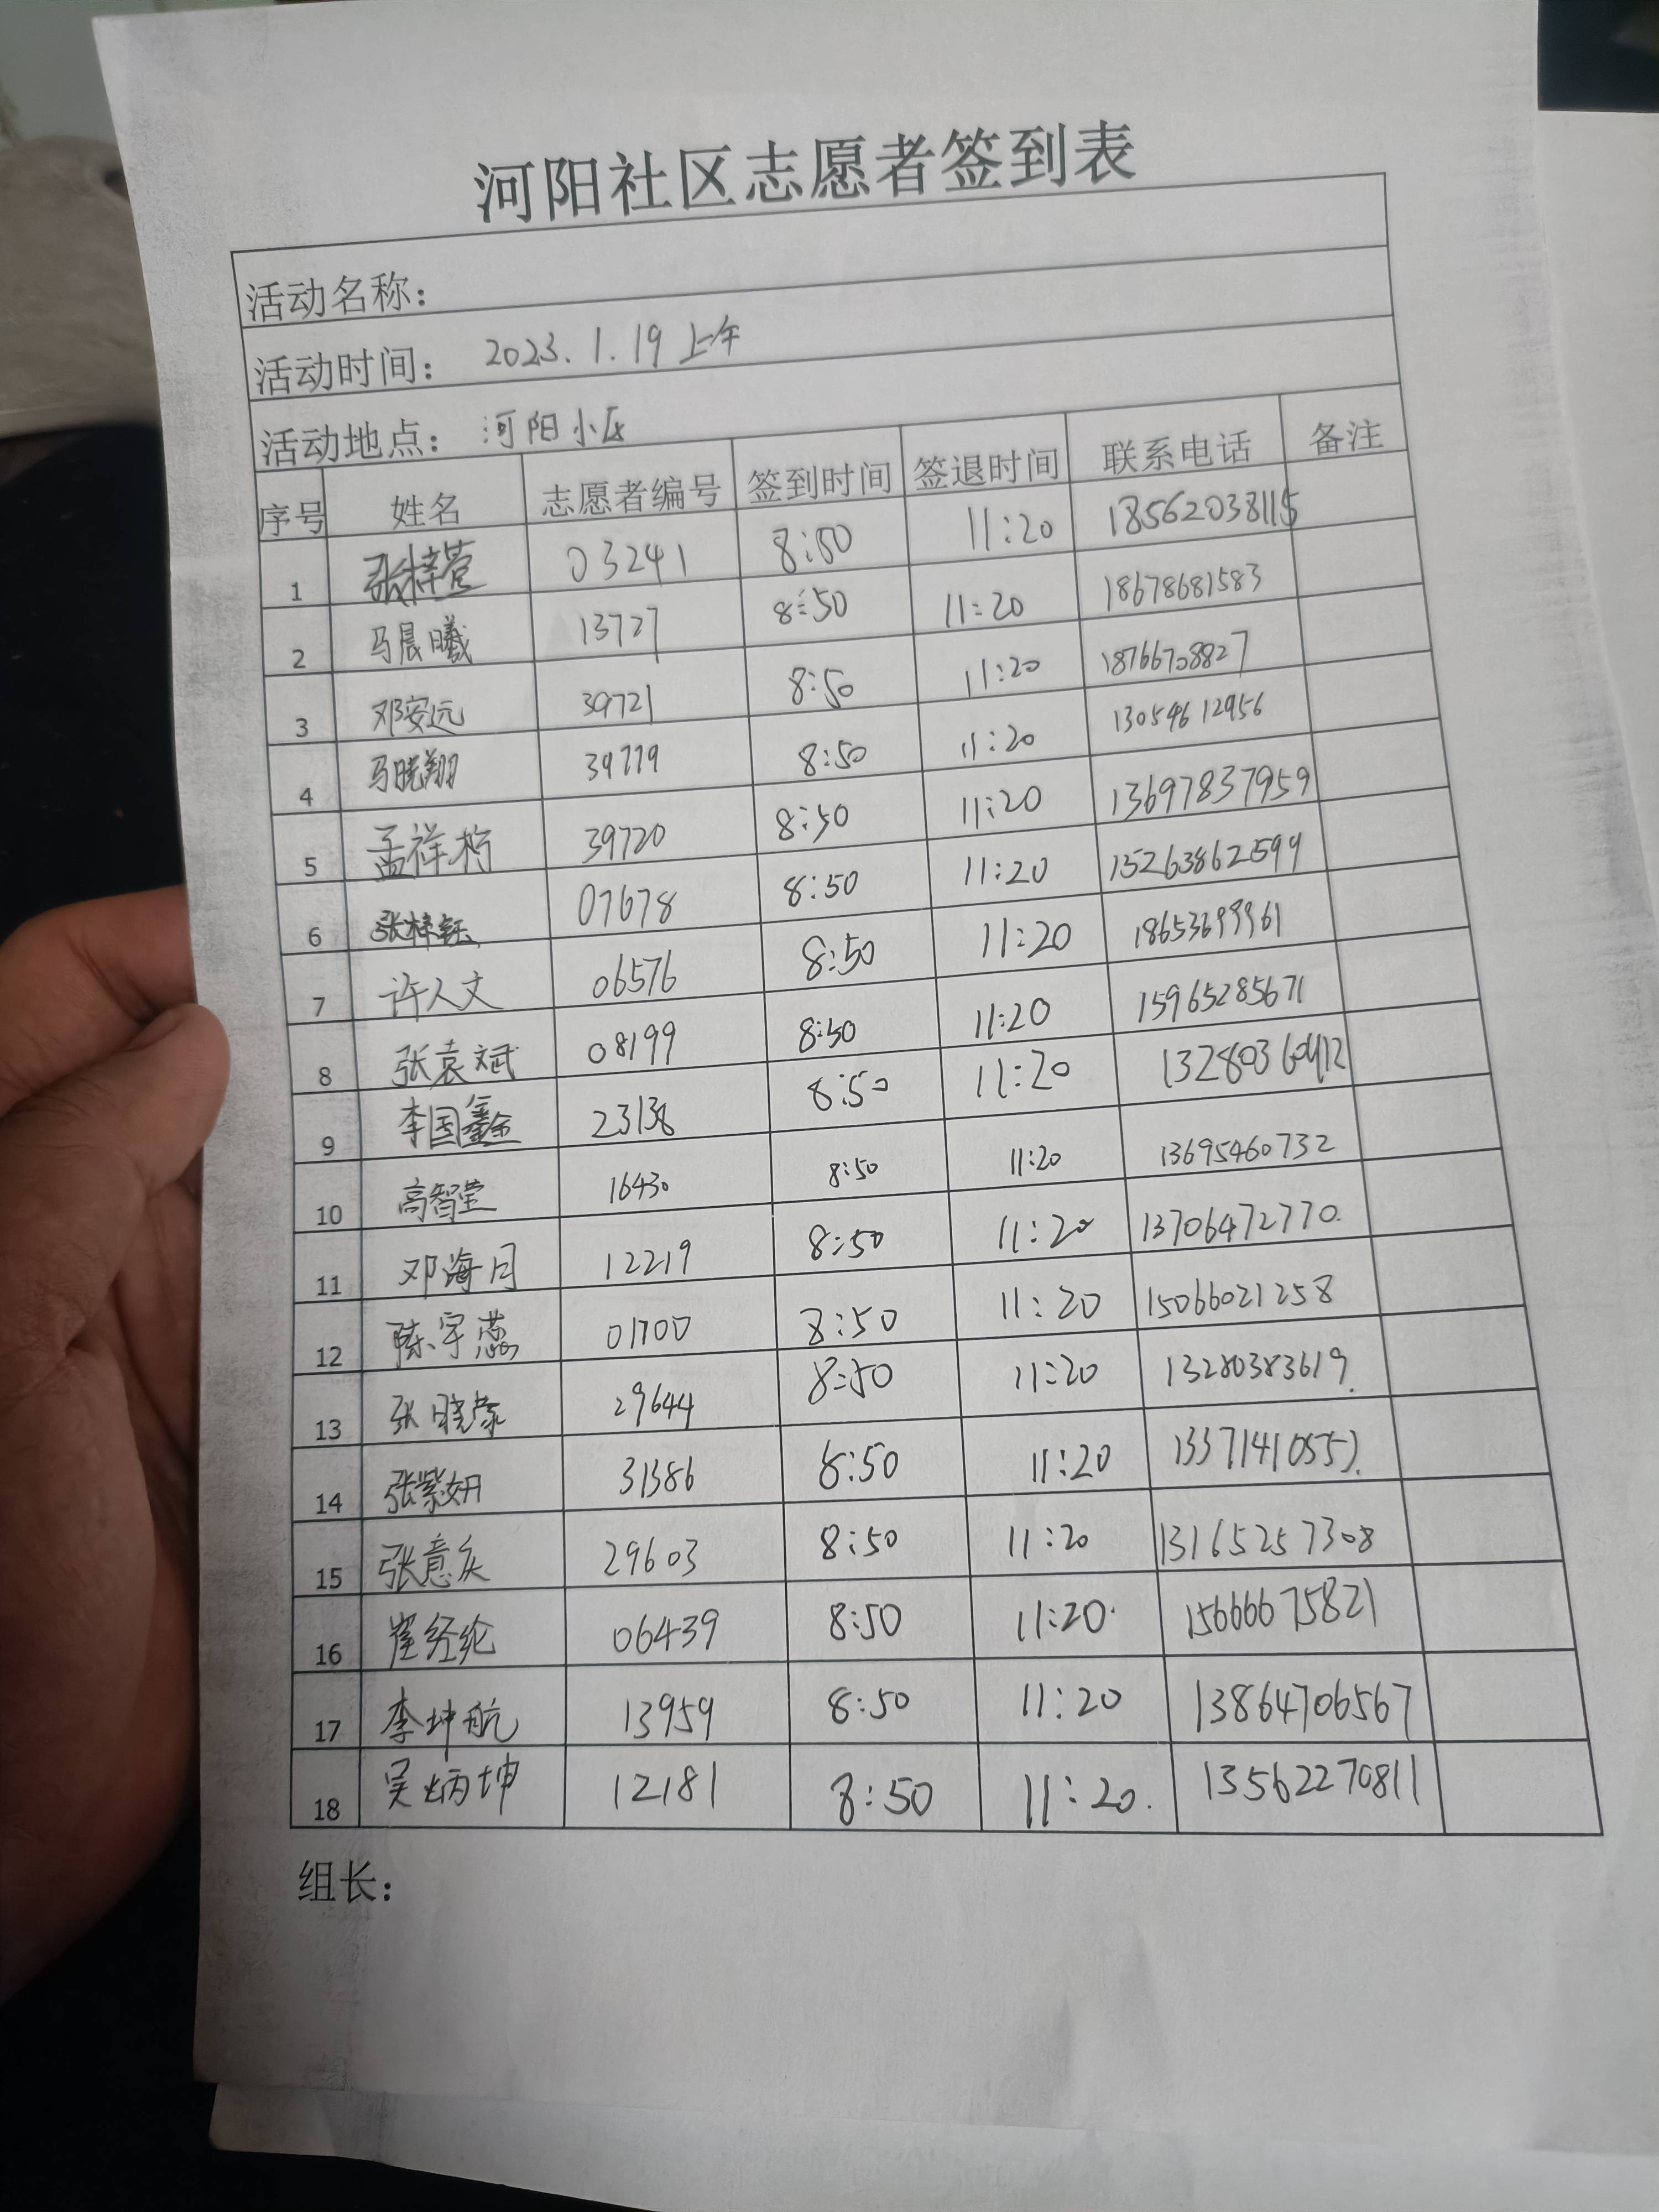 河阳社区志愿者签到表
活动名称：
活动时间： 2023.1.19上午
活动地点： 河阳小区
序号 姓名 志愿者编号 签到时间 签退时间 联系电话 备注
1 张梓萱 03241 8:50 11:20 18562038115
2 马晨曦 13727 8:50 11:20 18678681583
3 邓安远 39721 8:50 11:20 18766708827
4 马晓翔 39779 8:50 11:20 13054612956
5 孟祥栉 39720 8:50 11:20 13697837959
6 张梓钰 07678 8:50 11:20 15263862599
7 许人文 06576 8:50 11:20 18653699961
8 张袁斌 08199 8:50 11:20 15965285671
9 李国鑫 23138 8:50 11:20 13280360412
10 高智莹 16430 8:50 11:20 13695460732
11 邓海月 12219 8:50 11:20 13706472770.
12 陈宇蕊 01700 8:50 11:20 15066021258
13 张晓蒙 29644 8:50 11:20 13280383619.
14 张紫妍 31386 8:50 11:20
15 张意庆 29603 8:50 11:20 13165257308
16 崔经纶 06439 8:50 11:20. 15666675821
17 李坤航 13959 8:50 11:20 13864706567
18 吴炳坤 12181 8:50 11:20. 13562270811
组长：